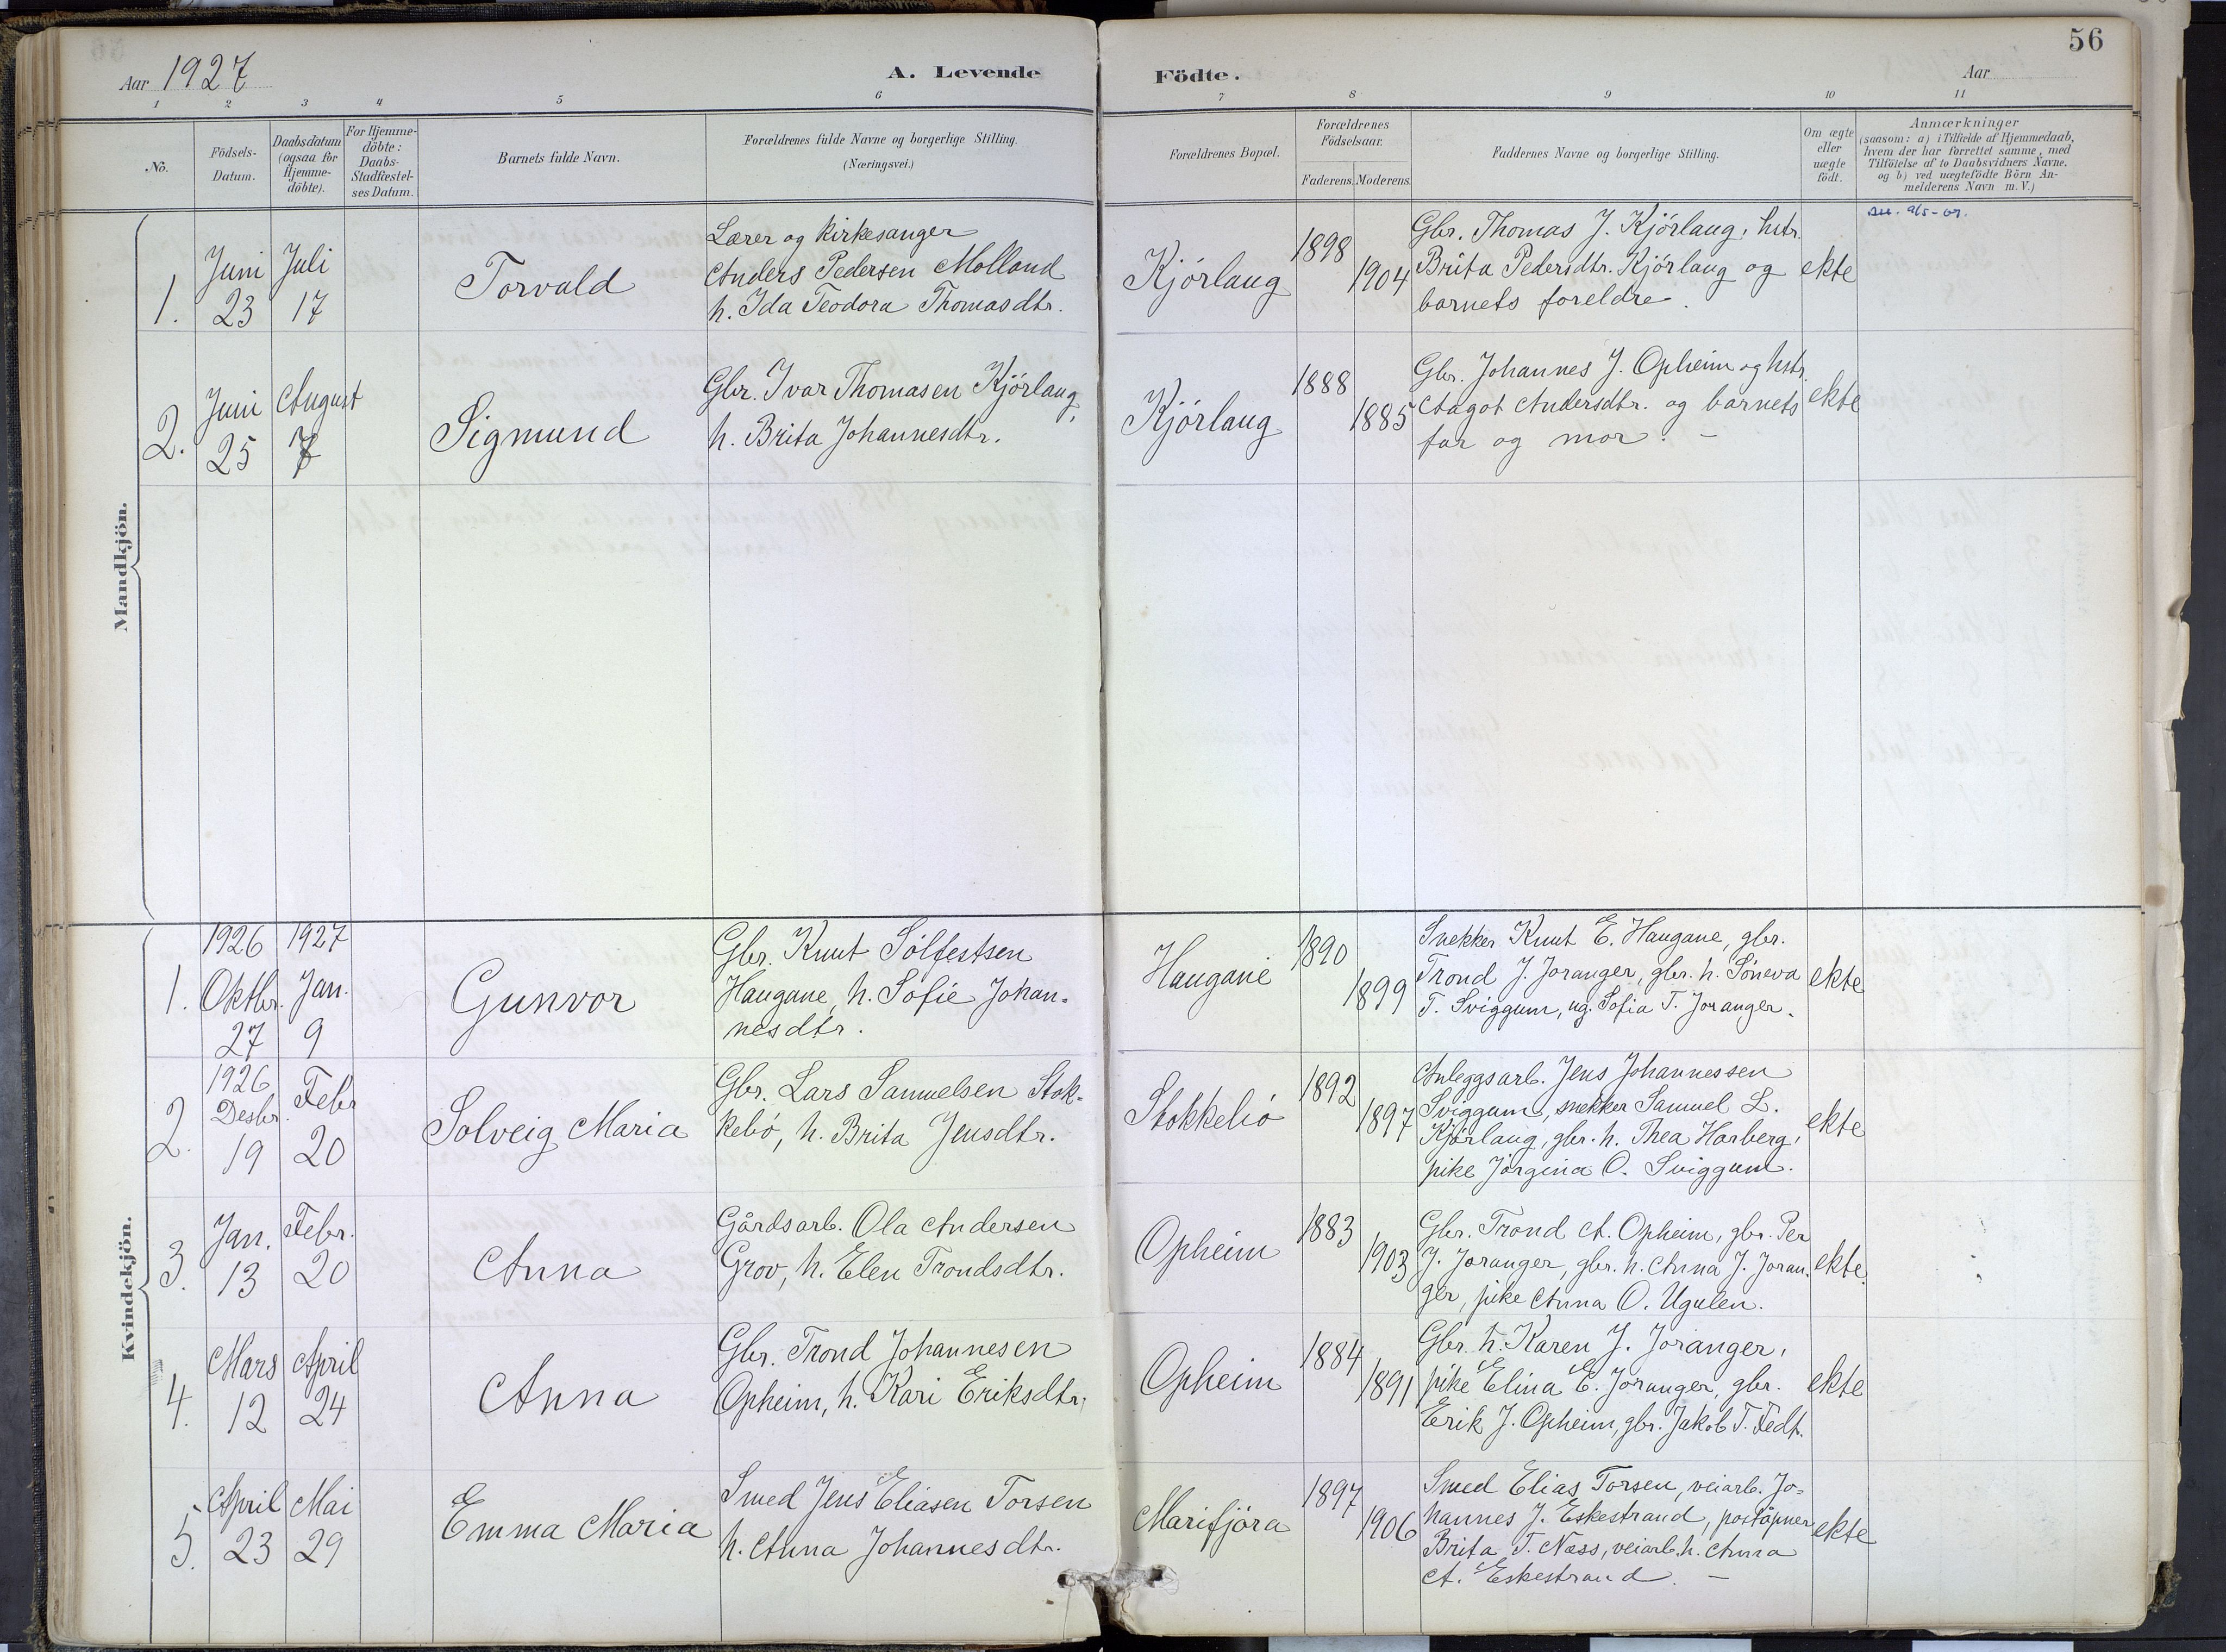 56
Aar 1927
A. Levende Födte.
Aar
1 2 3 4 5 6 7 8 9 10 11
No.
Födsels-
Datum.
Daabsdatum
(ogsaa for
Hjemme-
döbte).
For Hjemme-
döbte:
Daabs-
Stadfæstel-
ses Datum.
Barnets fulde Navn.
Forældrenes fulde Navne og borgerlige Stilling.
(Næringsvei.)
Forældrenes Bopæl.
Forældrenes
Födselsaar.
Faderens. Moderens.
Faddernes Navne og borgerlige Stilling.
Om ægte
eller
uægte
födt.
Anmærkninger
(saasom: a) i Tilfælde af Hjemmedaab,
hvem der har forrettet samme, med
Tilföielse af to Daabsvidners Navne.
og b) ved uægtefödte Börn An-
melderens Navn m. V.)
Mandkjön.
1.
Juni
23
Juli
17
Torvald
Lærer og Kirkesanger
Anders Pedersen Molland
h. Ida Teodora Thomasdtr.
Kjörlaug
1898
1904
Gbr. Thomas J. Kjörlaug, hstr.
Brita Pedersdtr. Kjörlaug og
barnets foreldre.
ekte
2.
Juni
25
August
7
Sigmund
Gbr. Ivar Thomasen Kjörlaug,
h. Brita Johannesdtr.
Kjörlaug
1888
1885
Gbr. Johannes J. Opheim og hstr.
Aagot Andersdtr. og barnets
far og mor. –
ekte
Kvindekjön.
1.
1926
Oktbr.
27
1927
Jan.
9
Gunvor
Gbr. Knut Sölfestsen
Haugane, h. Sofie Johan-
nesdtr.
Haugane
1890
1899
Snekker Knut E. Haugane, gbr.
Trond J. Joranger, gbr. h. Söneva
T. Sviggum, ug. Sofia T. Joranger.
ekte
2.
1926
Desbr.
19
Febr
20
Solveig Maria
Gbr. Lars Samuelsen Stok-
kebö, h. Brita Jensdtr.
Stokkebö
1892
1897
Anleggsarb. Jens Johannessen
Sviggum, snekker Samuel L.
Kjörlaug, gbr. h. Thea Harberg,
pike Jörgina O. Sviggum.
ekte
3.
Jan.
13
Febr.
20
Anna
Gårdsarb. Ola Andersen
Grov, h. Elen Trondsdtr.
Opheim
1883
1903
Gbr. Trond A. Opheim, gbr. Per
J. Joranger, gbr. h. Anna J. Joran-
ger, pike Anna O. Ugulen.
ekte.
4.
Mars
12
April
24
Anna
Gbr. Trond Johannesen
Opheim, h. Kari Eriksdtr.
Opheim
1884
1891
Gbr. h. Karen J. Joranger,
pike Elina E. Joranger, gbr.
Erik J. Opheim, gbr. Jakob T.
ekte
5.
April
23
Mai
29
Emma Maria
Smed Jens Eliasen Torsen
h. Anna Johannesdtr.
Marifjöra
1897
1906
Smed Elias Torsen, veiarb. Jo-
hannes J. Eskestrand, poståpner
Brita T. Næss, veiarb. h. Anna
A. Eskestrand. –
ekte